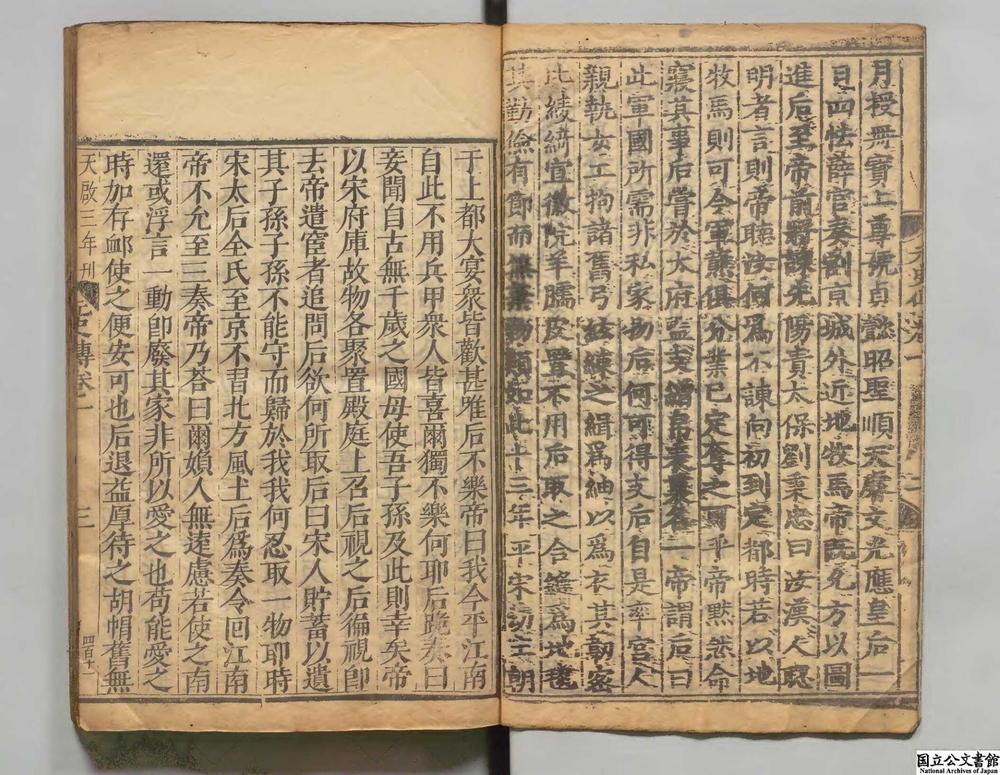 月授無寶上尊號貞懿昭聖順天睿文光應皇后一
日四怯薛官奏割京城外近地牧馬帝既允方以圖
進后至帝前將諫先陽責太保劉秉忠曰汝漢人聰
明者言則帝聽汝何為不諫向初到定都時若以地
牧馬則可今軍蘸俱分業已定奪之可乎帝默然命
寢其事后嘗於太府監支繒帛表裏各一帝謂后曰
此軍國所需非私家物后何可得支后自是率宮人
親執女工拘諸舊弓絃練之緝為紬以為衣其韌密
比綾綺宣徽院羊臑皮置不用后取之合縫為地毯
其勤儉有節而無棄物類如此十三年平宋幼主朝
于上都大宴衆皆歡甚唯后不樂帝曰我今平江南
自此不用兵甲衆人皆喜爾獨不樂何耶后跪奏曰
妾聞自古無千歲之國毋使吾子孫及此則幸矣帝
以宋府庫故物各聚置殿庭上召后視之后徧視卽
去帝遣宦者追問后欲何所取后曰宋人貯蓄以遺
其子孫子孫不能守而歸於我我何忍取一物耶時
宋太后全氏至京不習北方風土后爲奏令回江南
帝不允至三奏帝乃荅曰爾婦人無遠慮若使之南
還或浮言一動卽廢其家非所以愛之也苟能愛之
時加存卹使之便安可也后退益厚待之胡帽舊無
天啟三年刊 傳卷一 三
国立公文書館
National Archives of Japan